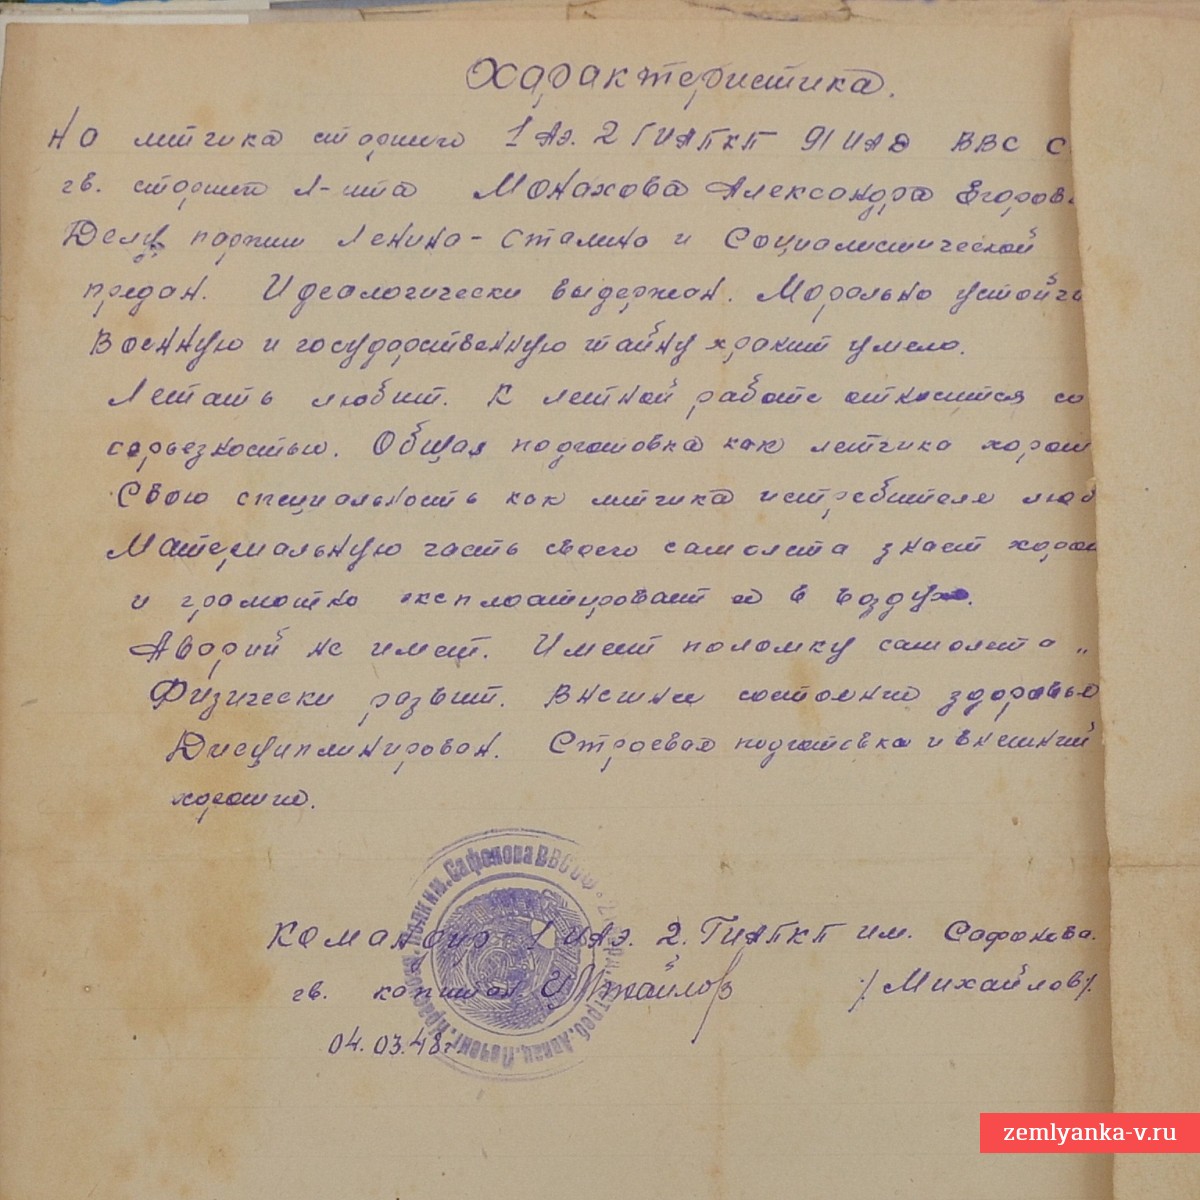 Характеристика.
На летчика старшего 1 АЭ. 2 ГИАПКП 91 ИАД ВВС С
гв. старшего л-нта Монахова Александра Егоров
Делу партии Ленина-Сталина и Социалистической
предан. Идеалогически выдержан. Морально устойчи
Военную и государственную тайну хранит умело.
Летать любит. К летной работе относится со
серьезностью. Общая подготовка как летчика хорош
Свою специальность как летчика истребителя люб
Материальную часть своего самолета знает хорош
и грамотно експлоатирует в воздухе.
Аварий не имеет. Имеет поломку самолета „
Физически развит. Внешнее состояние здоровья
Дисциплинирован. Строевая подготовка и внешний
хорошие.
Командир 1 ИАЭ. 2. ГИАПКП им. Сафонова.
гв. капитан. /Михайлов/.
04.03.48г
Полк им. Сафонова ВВС СФ
zemlyanka-v.ru